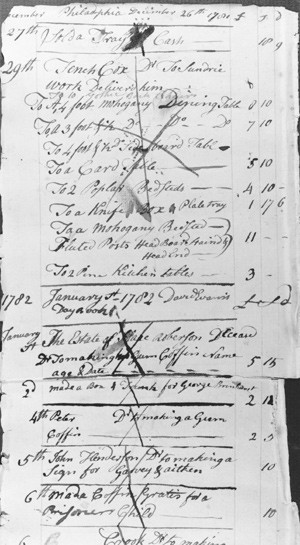 December Philadelphia December 26th 1781 £ s d
27th Cash 10 9
29th Tench Cox Dr To Sundrie
work Delivered him
To A 4 foot mohogany Dining Table 8 10
To a 3 foot Do Do 7 10
To 4 foot board Table
To a Card Table 5 10
To 2 Poplar Bedsteds 4 10
To a Knife Box & Plate tray 1 17 6
To a Mohogany Bedsted
Fluted Posts Head Board 11
Head End
To 2 Pine Kitchen tables 3
1782 January 1st 1782 David Evans £ s d
Day book
January The Estate of asberson Deceasd
Dr To making a Gum Coffin Name
age & Date 5 15
2d made a Box & Trunk for George 2 12
4th Peter Dr to making a Gum
Coffin 2 5
5th John Henderson Dr to making a
Sign for Garvey & aitken 10
6th made a Coffin gratis for a
Prisoners Child 10
Crook Dr to making